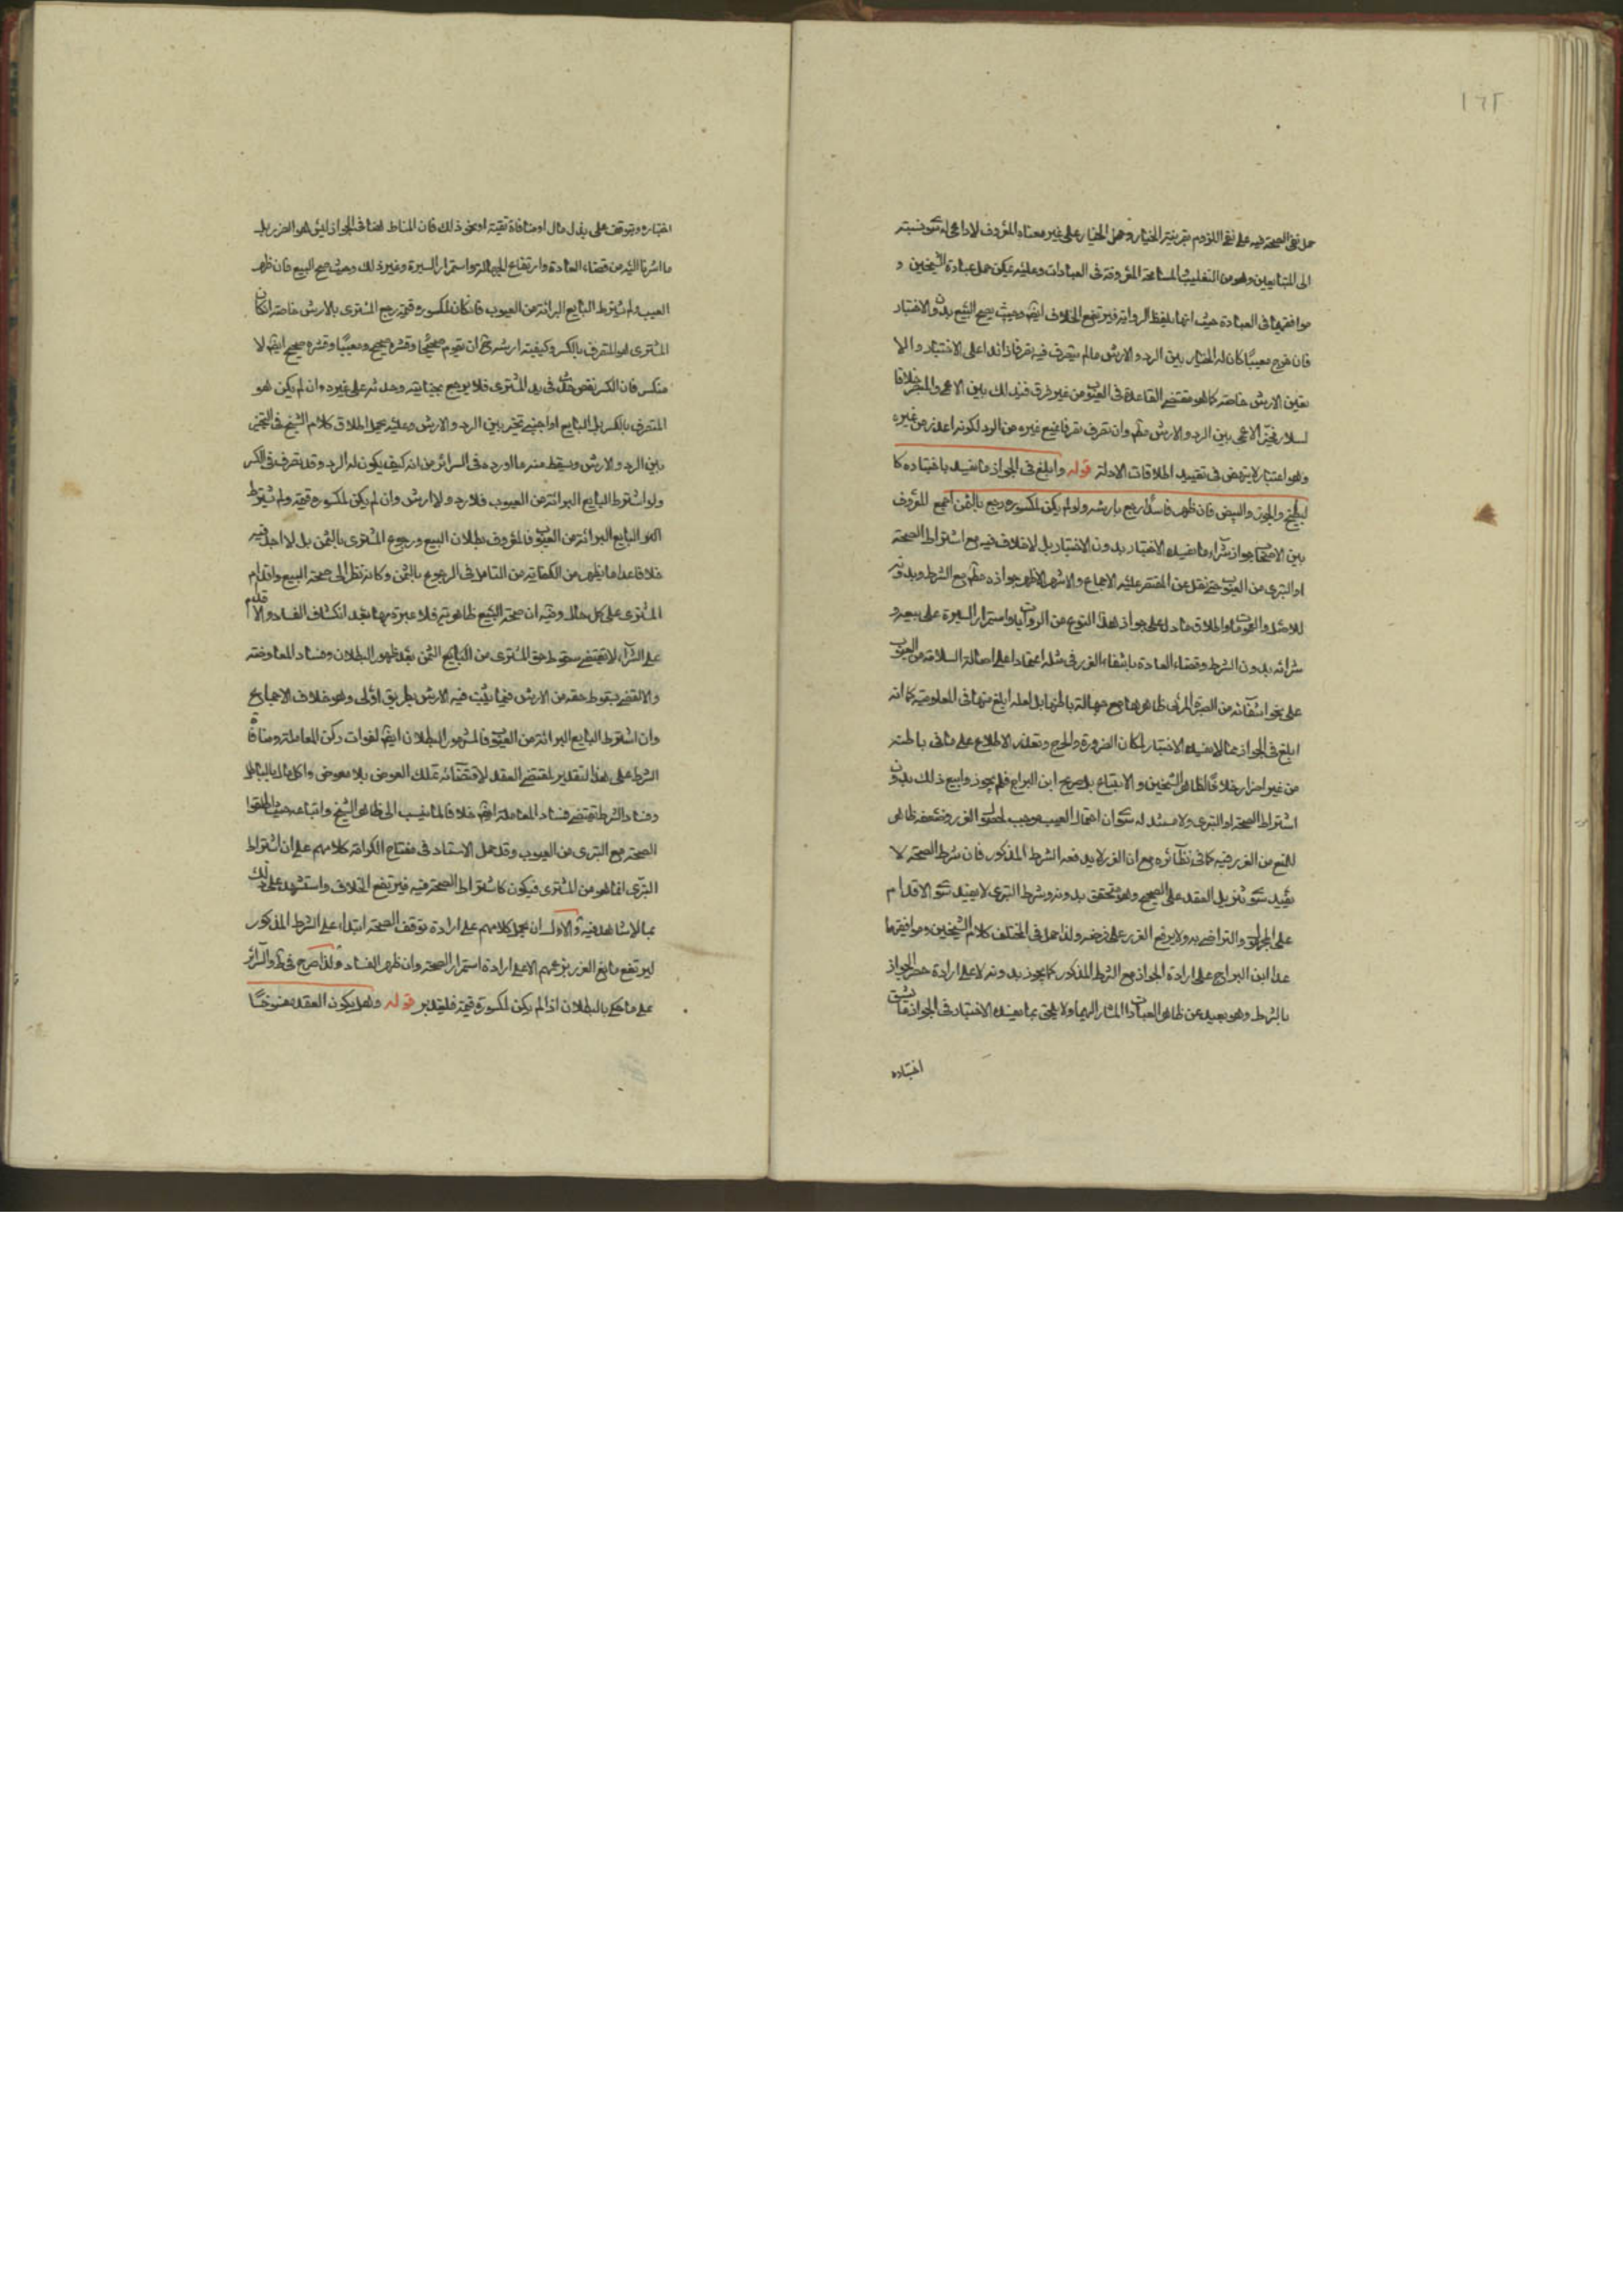 ١٦٢
حمل نفي الصحة فيه على نفي اللزوم بقرينة الخيار وحمل الخيار على غير معناه المعروف لا داعي له سوى نسبته
الى المتبايعين وهو من التغليب المسامحة المعروفة في العبادات وعليه يمكن حمل عبارة الشيخين و
موافقيهما في العبارة حيث انها بلفظ الرواية فيرتفع الخلاف ايضا وحيث يصح البيع بدون الاختبار
فان خرج معيبا كان له الخيار بين الرد والارش مالم يتصرف فيه تصرفا زائدا على الاختبار والا
تعين الارش خاصة كما هو مقتضى القاعدة في العيوب من غير فرق في ذلك بين الاعمى والمبصر خلافا
لسلار فخير الاعمى بين الرد والارش مطلقا وان تصرف تصرفا يمنع غيره من الرد لكونه اعذر من غيره
وهو اعتبار لا ينهض في تقييد اطلاقات الادلة قوله وابلغ في الجواز ما يفسد باختباره كا
لبطيخ والجوز والبيض فان ظهر فاسدا رجع بارشه ولو لم يكن لمكسوره رجع بالثمن اجمع المعروف
بين الاصحاب جواز شراء ما يفسده الاختبار بدون الاختبار بل لا خلاف فيه مع اشتراط الصحة
او التبري من العيوب حتى نقل عن المقتصر عليه الاجماع والاشهر الاظهر جوازه مطلقا مع الشرط وبدونه
للاصل والعمومات واطلاق ما دل على جواز هذا النوع من الروايات واستمرار السيرة على بيعه و
شرائه بدون الشرط وقضاء العادة بانتفاء الغرر في مثله اعتمادا على اصالة السلامة من العيوب
على نحو استثنائه من الصبرة المرئي ظاهرها مع جهالة باطنها بل لعله ابلغ منها في المعلومية كما انه
ابلغ في الجواز مما لا يفسده الاختبار لمكان الضرورة والحرج وتعذر الاطلاع على ما في باطنه
من غير اضرار خلافا لظاهر الشيخين والاتباع بل صريح ابن البراج فلم يجوزوا بيع ذلك بدون
اشتراط الصحة او التبري ولا مستند له سوى ان احتمال العيب موجب لحصول الغرر وضعفه ظاهر
للمنع من الغرر فيه كما في نظائره مع ان الغرر لا يدفعه الشرط المذكور فان شرط الصحة لا
يفيد سوى تنزيل العقد على الصحيح وهو متحقق بدونه وشرط التبري لا يفيد سوى الاقدام
على المجهول والتراضي به ولا يرفع الغرر على فرضه ولذا حمل في المختلف كلام الشيخين وموافقيهما
عدا ابن البراج على ارادة الجواز مع الشرط المذكور كما يجوز بدونه لا على ارادة حصر الجواز
بالشرط وهو بعيد عن ظاهر العبارات المشار اليها ولا يلحق بما يفسده الاختبار في الجواز ما يشق
اختباره
اختباره ويتوقف على بذل مال او منافاة تقية او نحو ذلك فان المناط هنا في الجواز ليس هو الضرر بل
ما اشرنا اليه من قضاء العادة وارتفاع الجهالة واستمرار السيرة وغير ذلك وحيث صح البيع فان ظهر
العيب ولم يشترط البايع البرائة من العيوب فان كان لمكسوره قيمة رجع المشتري بالارش خاصة ان كان
المشتري هو المتصرف بالكسر وكيفية ارشه ح ان يقوم صحيحا وقشره صحيح ومعيبا وقشره صحيح ايضا لا
منكسر فان الكسر نقص حدث في يد المشتري فلا يرجع بجنايته وحدثه على غيره وان لم يكن هو
المتصرف بالكسر بل البايع او اجنبي تخير بين الرد والارش وعليه يحمل اطلاق كلام الشيخ في التخيير
بين الرد والارش ويسقط منه ما اورده في السرائر من انه كيف يكون له الرد وقد تصرف في الكسر
ولو اشترط البايع البرائة من العيوب فلا رد ولا ارش وان لم يكن لمكسوره قيمة ولم يشترط
البايع البرائة من العيوب فالمعروف بطلان البيع ورجوع المشتري بالثمن بل لا اجد فيه
خلافا عدا ما يظهر من الكفاية من التامل في الرجوع بالثمن وكانه نظر الى صحة البيع واقدام
المشتري على كل حال وفيه ان صحة البيع ظاهرية فلا عبرة بها بعد انكشاف الفساد والاقدام
على الشراء لا يقتضي سقوط حق المشتري من البايع الثمن بعد ظهور البطلان وفساد المعاوضة
والا لقضي بسقوط حقه من الارش فيما يثبت فيه الارش بطريق اولى وهو خلاف الاجماع
وان اشترط البايع البرائة من العيوب فالمشهور البطلان ايضا لفوات ركن المعاملة ومنافاة
الشرط على هذا التقدير لمقتضى العقد لاقتضائه تملك العوض بلا معوض واكل مال بالباطل
وفساد الشرط يقتضي فساد المعاملة ايضا خلافا لما نسب الى ظاهر الشيخ واتباعه حيث اطلقوا
الصحة مع التبري من العيوب وقد حمل الاستاد في مفتاح الكرامة كلامهم على ان اشتراط
التبري انما هو من المشتري فيكون كاشتراط الصحة فيه فيرتفع الخلاف واستشهد على ذلك
بما لا شاهد فيه والاولى ان يحمل كلامهم على ارادة توقف الصحة ابتداء على الشرط المذكور
ليرتفع مانع الغرر بزعمهم لا على ارادة استمرار الصحة وان ظهر الفساد ولذا صرح في ط والسرائر
على ما حكي بالبطلان اذا لم يكن لمكسوره قيمة فليتدبر قوله وهل يكون العقد مفسوخا